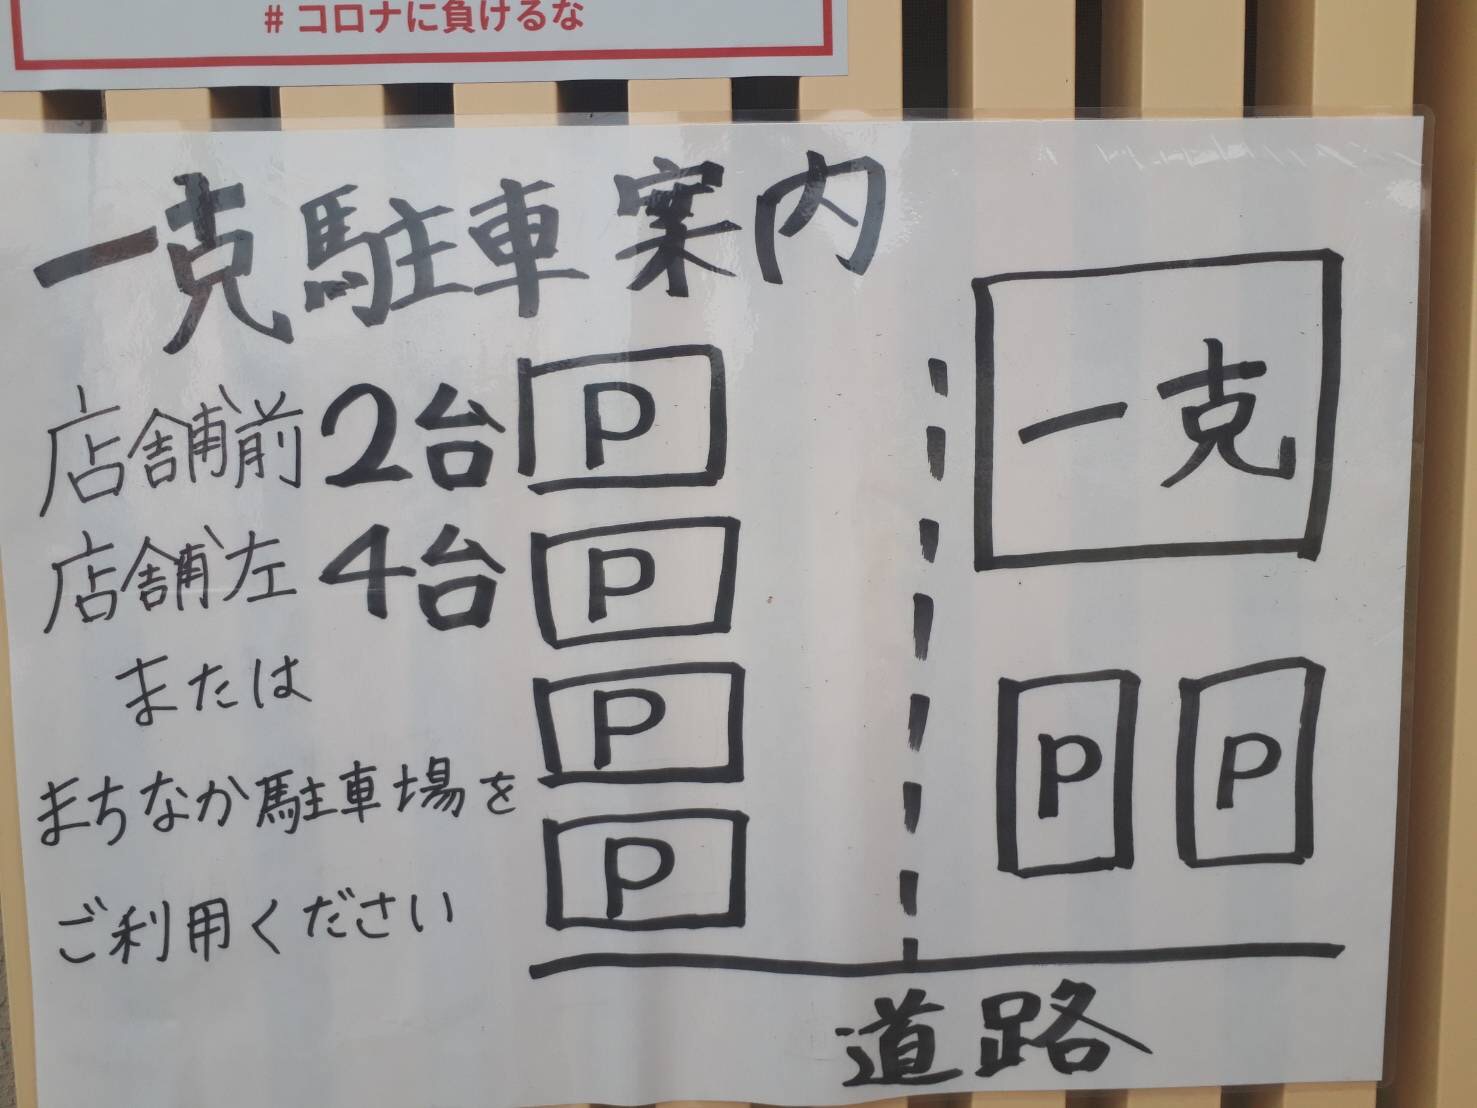 #コロナに負けるな
一克駐車案内
店舗前2台
店舗左4台
または
まちなか駐車場を
ご利用ください
P
P
P
P
一克
P P
道路